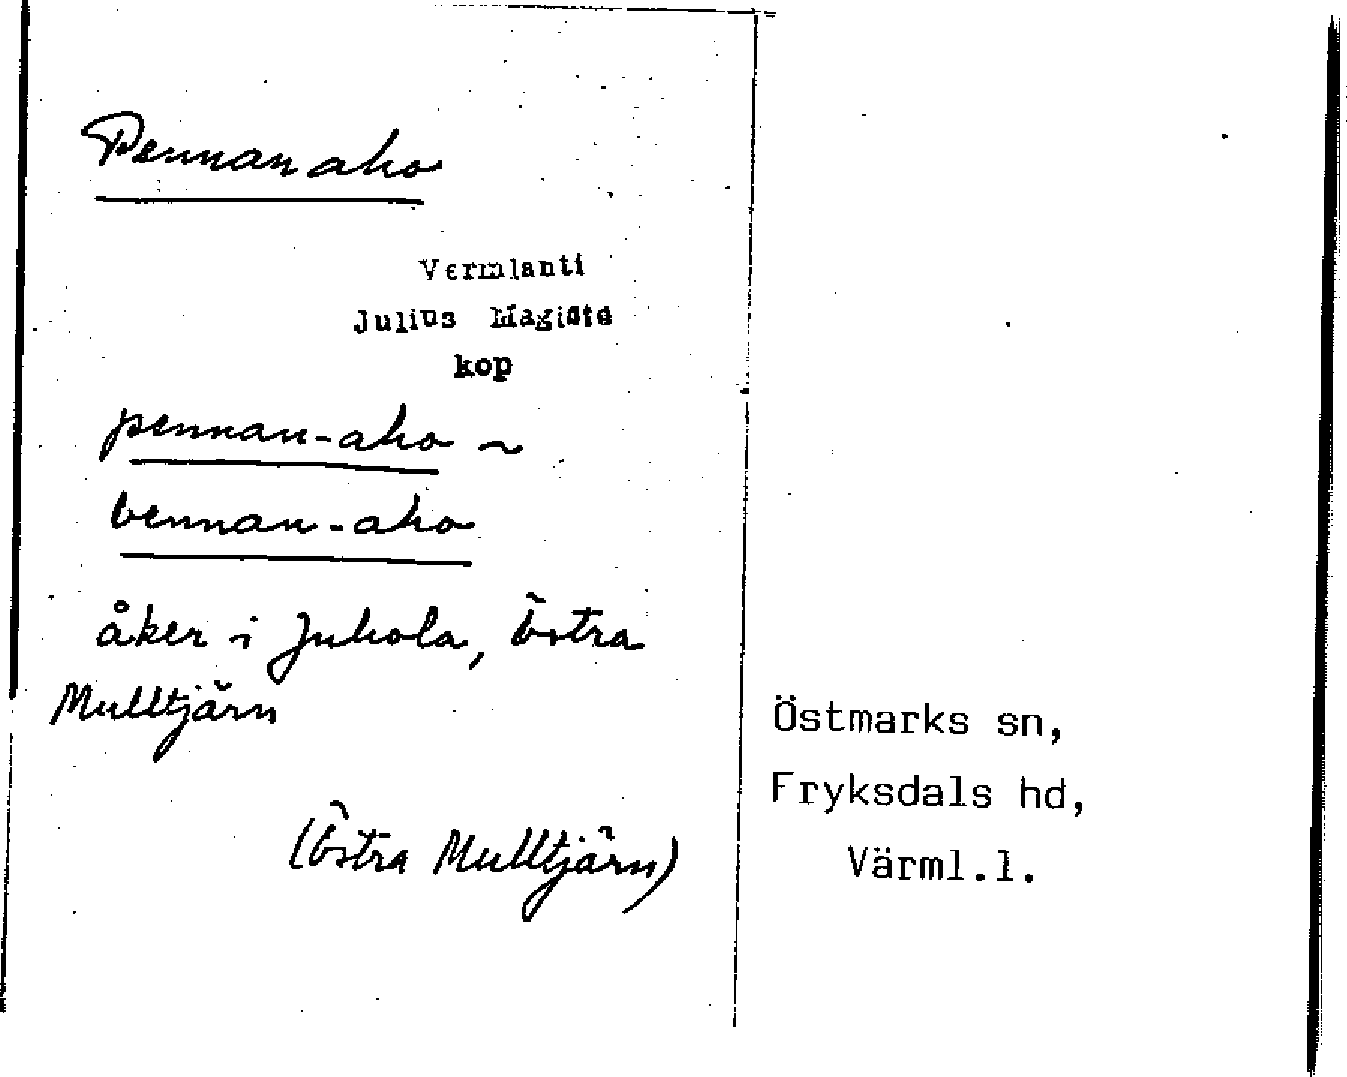 Pennanaho
Vermlanti
Julius Mägiste
kop
pennan-aho ~
bennan-aho
åker i Juhola, Östra
Mulltjärn
(Östra Mulltjärn)
Östmarks sn,
Fryksdals hd,
Värml.l.